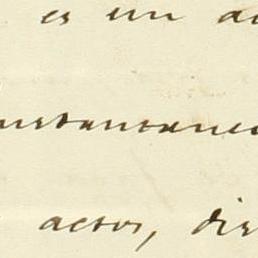 es un ac
nstantanea
actos, dis